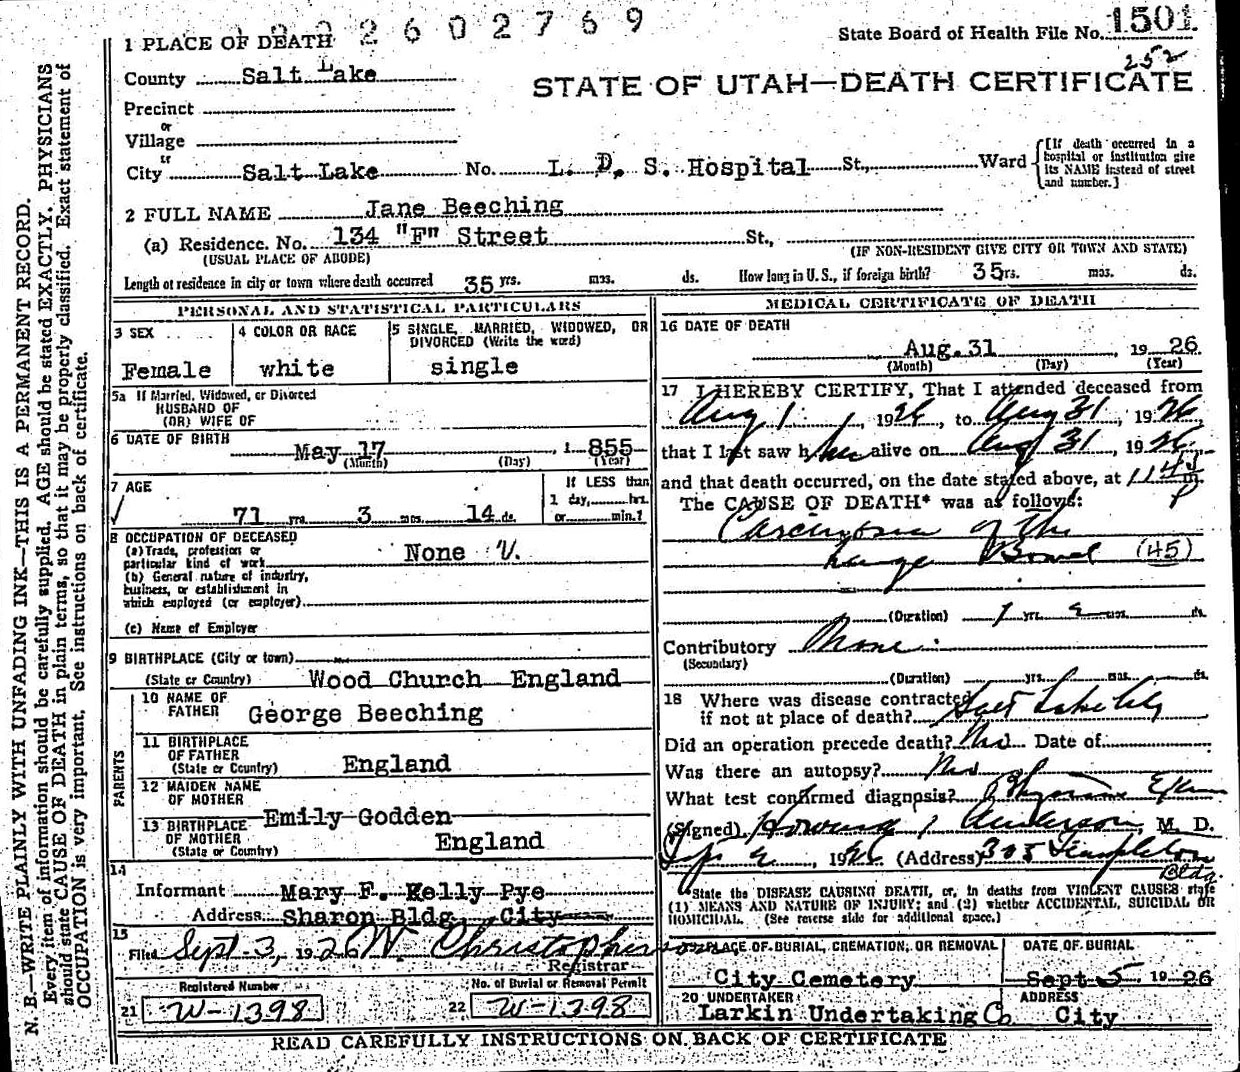 2602769
State Board of Health File No. 1501
252
1 PLACE OF DEATH
County Salt Lake
STATE OF UTAH—DEATH CERTIFICATE
Precinct
or
Village
or
City Salt Lake No. L. D. S. Hospital St., Ward
[If death occurred in a hospital or institution give its NAME instead of street and number.]
2 FULL NAME Jane Beeching
(a) Residence. No. 134 "F" Street St.,
(USUAL PLACE OF ABODE) (IF NON-RESIDENT GIVE CITY OR TOWN AND STATE)
Length of residence in city or town where death occurred 35 yrs. mos. ds. How long in U. S., if foreign birth? 35 rs. mos. ds.
PERSONAL AND STATISTICAL PARTICULARS
3 SEX
Female
4 COLOR OR RACE
white
5 SINGLE, MARRIED, WIDOWED, OR
DIVORCED (Write the word)
single
5a If Married, Widowed, or Divorced
HUSBAND OF
(OR) WIFE OF
6 DATE OF BIRTH
May 17, 1 855
(Month) (Day) (Year)
7 AGE
71 yrs. 3 mos. 14 ds.
If LESS than
1 day, hrs.
or min.?
8 OCCUPATION OF DECEASED
(a) Trade, profession or
particular kind of work None V.
(b) General nature of industry,
business, or establishment in
which employed (or employer)
(c) Name of Employer
9 BIRTHPLACE (City or town)
(State or Country) Wood Church England
PARENTS
10 NAME OF
FATHER George Beeching
11 BIRTHPLACE
OF FATHER
(State or Country) England
12 MAIDEN NAME
OF MOTHER Emily Godden
13 BIRTHPLACE
OF MOTHER
(State or Country) England
14
Informant Mary F. Kelly Pye
Address Sharon Bldg. City
15
Filed Sept. 3, 1926 W. Christopherson
Registrar
Registered Number
21 W-1398
No. of Burial or Removal Permit
22 W-1398
MEDICAL CERTIFICATE OF DEATH
16 DATE OF DEATH
Aug. 31, 19 26
(Month) (Day) (Year)
17 I HEREBY CERTIFY, That I attended deceased from
Aug 1, 1926, to Aug 31, 1926
that I last saw her alive on Aug 31, 1926
and that death occurred, on the date stated above, at 1145 m.
P
The CAUSE OF DEATH* was as follows:
Carcinoma of the
Large Bowel (45)
(Duration) 1 yrs. mos. ds.
Contributory None
(Secondary)
(Duration) yrs. mos. ds.
18 Where was disease contracted
if not at place of death? Salt Lake City
Did an operation precede death? No Date of
Was there an autopsy? No
What test confirmed diagnosis? Exam
(Signed) Howard Anderson, M. D.
Sep 2, 1926 (Address) 305 Templeton
Bldg.
*State the DISEASE CAUSING DEATH, or, in deaths from VIOLENT CAUSES state
(1) MEANS AND NATURE OF INJURY; and (2) whether ACCIDENTAL, SUICIDAL OR
HOMICIDAL. (See reverse side for additional space.)
PLACE OF BURIAL, CREMATION, OR REMOVAL
City Cemetery
DATE OF BURIAL
Sept 5 19 26
20 UNDERTAKER
Larkin Undertaking Co.
ADDRESS
City
READ CAREFULLY INSTRUCTIONS ON BACK OF CERTIFICATE
N. B.—WRITE PLAINLY WITH UNFADING INK—THIS IS A PERMANENT RECORD.
Every item of information should be carefully supplied. AGE should be stated EXACTLY. PHYSICIANS
should state CAUSE OF DEATH in plain terms, so that it may be properly classified. Exact statement of
OCCUPATION is very important. See instructions on back of certificate.